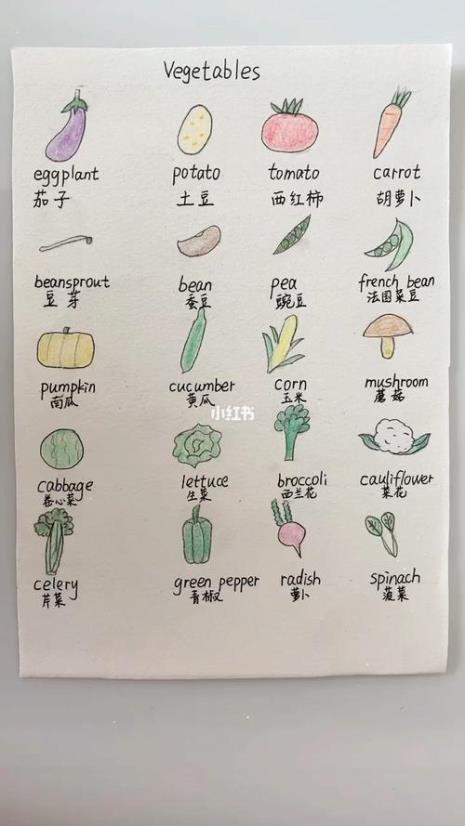 Vegetables
eggplant potato tomato carrot
茄子 土豆 西红柿 胡萝卜
beansprout bean pea french bean
豆芽 蚕豆 豌豆 法国菜豆
pumpkin cucumber corn mushroom
南瓜 黄瓜 玉米 蘑菇
小红书
cabbage lettuce broccoli cauliflower
卷心菜 生菜 西兰花 菜花
celery green pepper radish spinach
芹菜 青椒 萝卜 菠菜